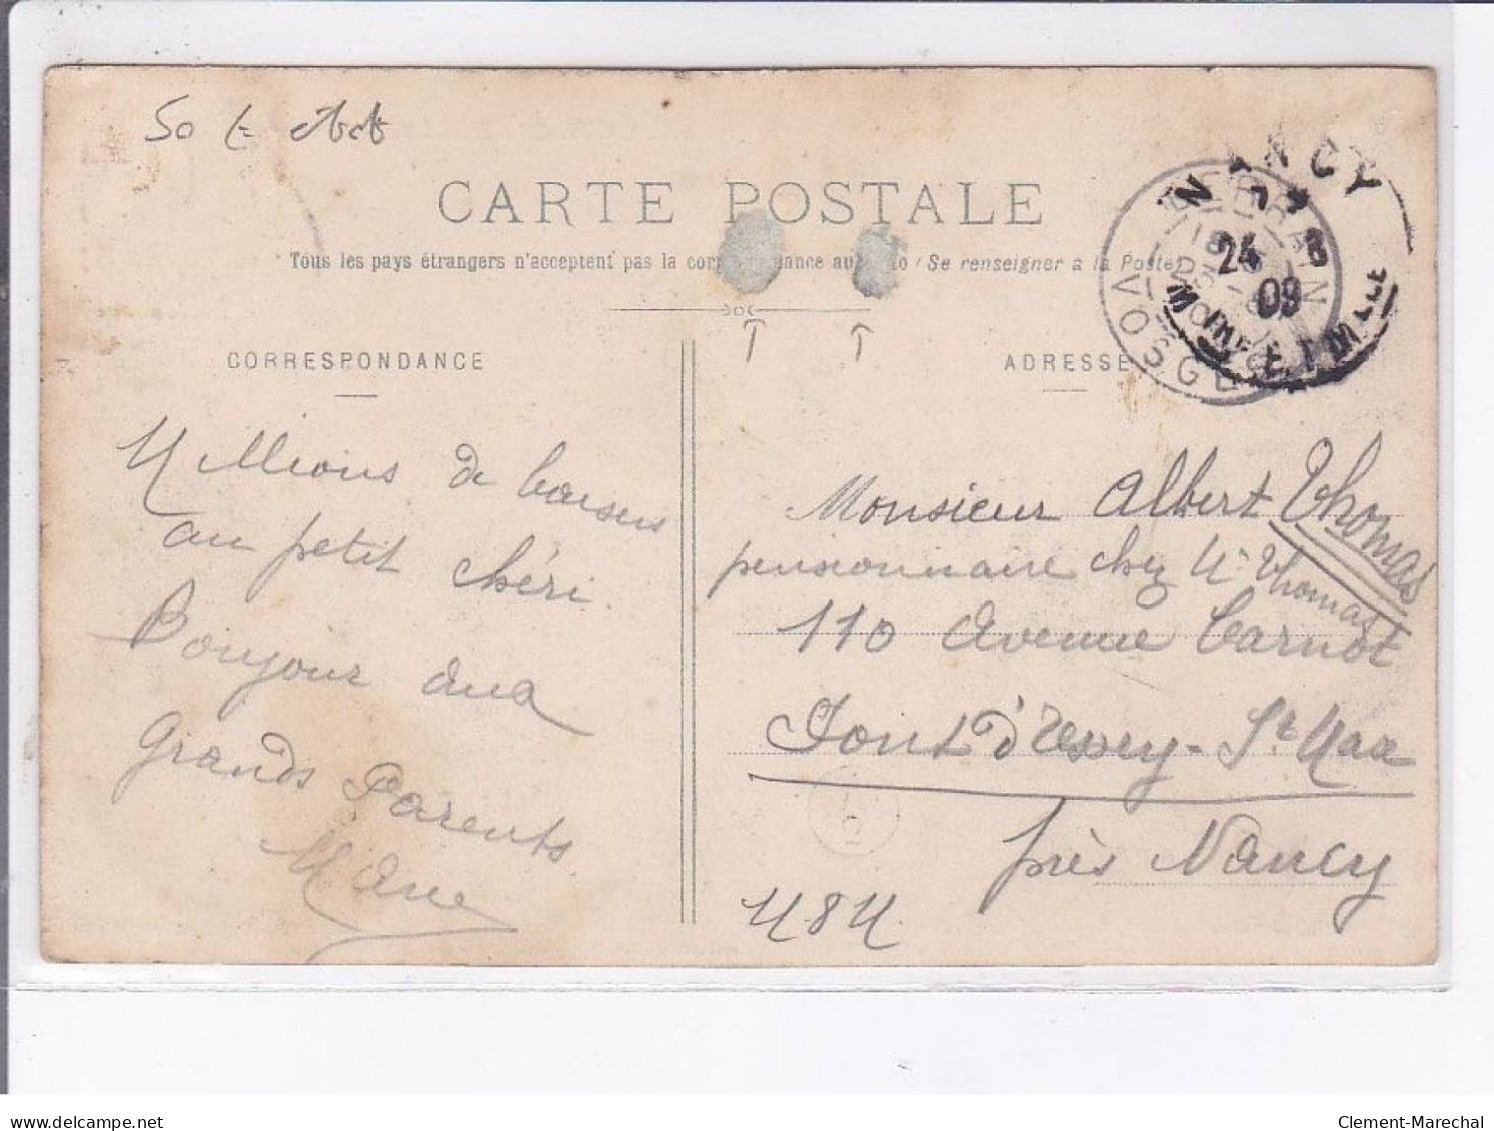 50 t
CARTE POSTALE
Tous les pays étrangers n'acceptent pas la cor ance au o (Se renseigner à la Poste)
NANCY
24 8
09
VOSGES
MEURTHE
CORRESPONDANCE
ADRESSE
Millions de baisers
au petit chéri.
Bonjour aux
Grands Parents
Monsieur Albert Thomas
pensionnaire chez Mr Thomas
110 Avenue Carnot
Pont d'Essey - St Max
près Nancy
M8M
delcampe.net
Clement-Marechal